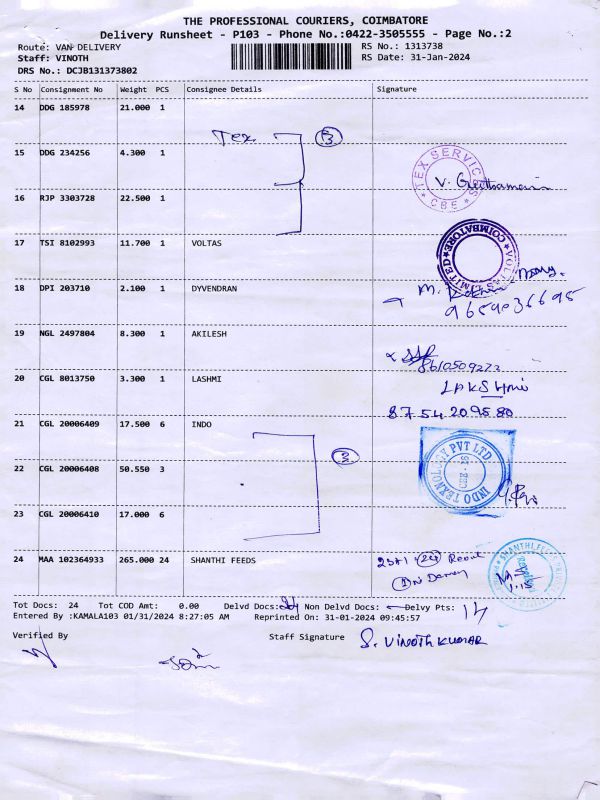 THE PROFESSIONAL COURIERS, COIMBATORE
Delivery Runsheet - P103 - Phone No.:0422-3505555 - Page No.:2
Route: VAN DELIVERY RS No.: 1313738
Staff: VINOTH RS Date: 31-Jan-2024
DRS No.: DCJB131373802
S No Consignment No Weight PCS Consignee Details Signature
14 DDG 185978 21.000 1
Tex 3
15 DDG 234256 4.300 1
TEX SERVICES
CBE
16 RJP 3303728 22.500 1
17 TSI 8102993 11.700 1 VOLTAS
VOLTAS LIMITED COIMBATORE
18 DPI 203710 2.100 1 DYVENDRAN
M.
9659036695
19 NGL 2497804 8.300 1 AKILESH
8610509272
20 CGL 8013750 3.300 1 LASHMI
LAKSHmi
8754209580
21 CGL 20006409 17.500 6 INDO
3
22 CGL 20006408 50.550 3
INDO TEXNOLOGY PVT LTD
23 CGL 20006410 17.000 6
24 MAA 102364933 265.000 24 SHANTHI FEEDS
SHANTHI FEEDS
1.15
Tot Docs: 24 Tot COD Amt: 0.00 Delvd Docs: 24 Non Delvd Docs: Delvy Pts: 14
Entered By :KAMALA103 01/31/2024 8:27:05 AM Reprinted On: 31-01-2024 09:45:57
Verified By Staff Signature S. VINOTH KUMAR